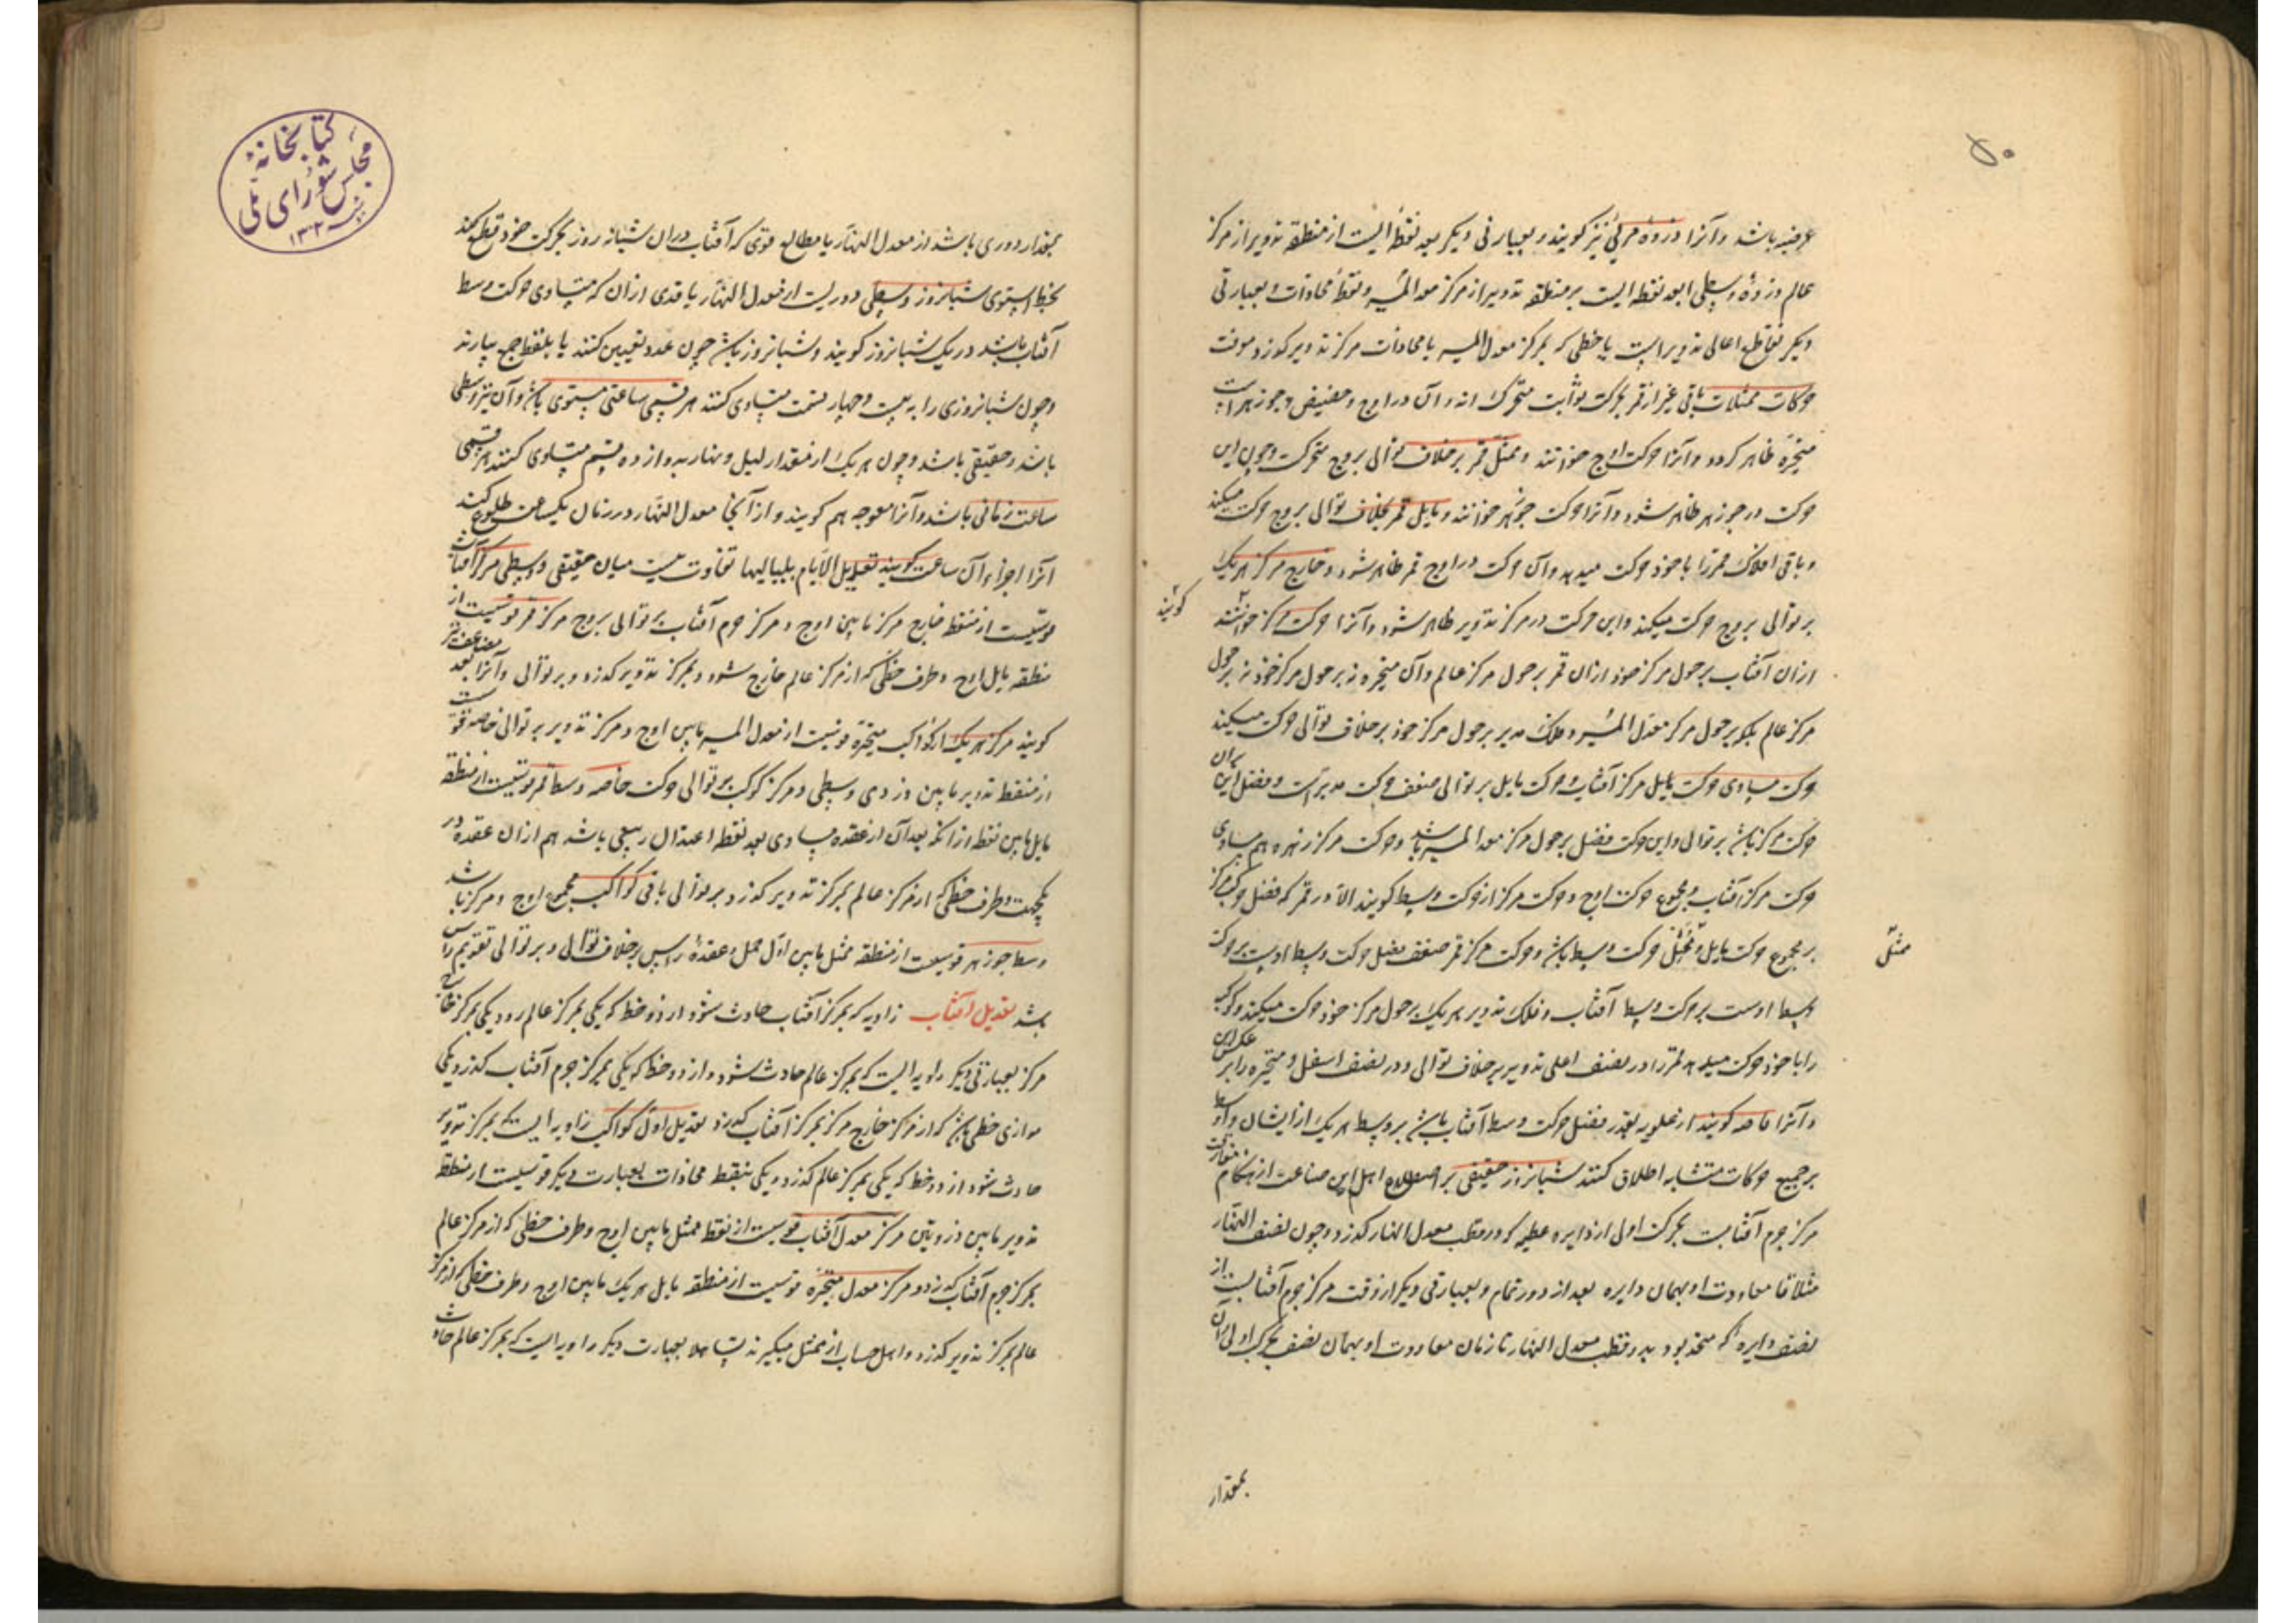 ۵۰
عرضیه باشد و آنرا ذروهٔ مرئی نیز گویند و بعبارتی دیگر بعد نقطهٔ ایست از منطقه تدویر از مرکز
عالم و ذروهٔ وسطی ابعد نقطه ایست بر منطقه تدویر از مرکز معدل المسیر و نقطهٔ محاذات و بعبارتی
دیگر تقاطع اعالی تدویر است با خطی که بمرکز معدل المسیر یا محاذات مرکز تدویر گذرد
حرکات ممثلات باقی غیر از قمر بحرکت ثوابت متحرک اند و آن در اوج و حضیض و جوزهرات
متحیره ظاهر گردد و آنرا حرکت اوج خوانند و ممثل قمر بر خلاف توالی بروج متحرکست و چون این
حرکت در جوزهر ظاهر شود و آنرا حرکت جوزهر خوانند و مایل قمر بخلاف توالی بروج حرکت میکند
و باقی افلاک قمر را با خود حرکت میدهد و آن حرکت در اوج قمر ظاهر شود و خارج مرکز هر یک
بر توالی بروج حرکت میکند و این حرکت در مرکز تدویر ظاهر شود و آنرا حرکت مرکز خوانند
گویند
از ان آفتاب بر حول مرکز خود از ان قمر بر حول مرکز عالم و آن متحیره نه بر حول مرکز خود نه بر حول
مرکز عالم بلکه بر حول مرکز معدل المسیر و فلک مدیر بر حول مرکز خود بر خلاف توالی حرکت میکند
حرکت مساوی حرکت مایل مرکز آفتاب و حرکت مایل بر توالی ضعف حرکت مدیر است و فضل این بران
حرکت مرکز باشد بر توالی و این حرکت فضل بر حول مرکز معدل المسیر باشد و حرکت مرکز زهره هم مساوی
حرکت مرکز آفتاب و مجموع حرکت اوج و حرکت مرکز را حرکت وسط گویند الا در قمر که فضل حرکت مرکز
بر مجموع حرکت مایل و ممثل حرکت وسط باشد و حرکت مرکز قمر ضعف فضل حرکت وسط اوست بر حرکت
ممثل
وسط اوست بر حرکت وسط آفتاب و فلک تدویر هر یک بر حول مرکز خود حرکت میکند و کوکب
را با خود حرکت میدهد قمر را در نصف اعلی تدویر بر خلاف توالی و در نصف اسفل و متحیره را بر عکس این
و آنرا خاصه گویند از علویه بقدر فضل حرکت وسط آفتاب باشد بر وسط هر یک از ایشان و اوسط
بر جمیع حرکات متشابه اطلاق کنند شبانروز حقیقی بر اصطلاح اهل این صناعت از هنگام مفارقت
مرکز جرم آفتابست بحرکت اولی از دایره عظیمه که در قطب معدل النهار گذرد و چون نصف النهار
مثلا تا معاودت او بهمان دایره بعد از دور تمام و بعبارتی دیگر از وقت مرکز جرم آفتابست از
نصف دایره که متحد بود بدو قطب معدل النهار تا زمان معاودت او بهمان نصف بحرکت اولی و آن
بمقدار
کتابخانهٔ
مجلس شورای ملی
بمقدار دوری باشد از معدل النهار با مطالع قوی که آفتاب دران شبانه روز بحرکت خود قطع کند
بخط استوی شبانروز وسطی دوریست از معدل النهار با قدری از ان که مساوی حرکت وسط
آفتاب باشد در یک شبانروز گویند و شبانروز باش چون عدد تعیین کنند یا بلفظ جمع بیارند
و چون شبانروزی را به بیست و چهار قسمت مساوی کنند هر قسمی ساعتی مستوی باشد و آن نیز وسطی
باشد و حقیقی باشد و چون هر یک از مقدار لیل و نهار بدوازده قسم متساوی کنند هر قسمی
ساعت زمانی باشد و آنرا معوجه هم گویند و از آنچ معدل النهار در زمان یکساعت طلوع کند
آنرا اجزاء آن ساعت گویند تعدیل الایام بلیالیها تفاوت است میان حقیقی و وسطی مرکز آفتاب
قوسیست از منطقه خارج مرکز مابین اوج و مرکز جرم آفتاب بر توالی بروج مرکز قمر قوسیست از
منطقه مایل اوج و طرف خطی که از مرکز عالم خارج شود و بمرکز تدویر گذرد و بر توالی و آنرا بعد مضاعف نیز
گویند مرکز هر یک از کواکب متحیره قوسیست از معدل المسیر مابین اوج و مرکز تدویر بر توالی خاصه قوسیست
از منطقه تدویر مابین ذروهٔ وسطی و مرکز کوکب بر توالی حرکت خاصه وسط قمر قوسیست از منطقه
مایل مابین نقطه از آنکه بعد آن از عقده مساوی بعد نقطه اعتدال ربیعی باشد هم از ان عقده در
یکجهت و طرف خطی که از مرکز عالم بمرکز تدویر گذرد بر توالی باقی کواکب مجموع اوج و مرکز باشد
وسط جوزهر قوسیست از منطقه ممثل مابین اول حمل و عقدهٔ راس بر خلاف توالی و بر توالی تقویم راس
باشد تعدیل آفتاب زاویه که بمرکز آفتاب حادث شود از دو خط که یکی بمرکز عالم رود و یکی بمرکز خارج
مرکز بعبارتی دیگر زاویه ایست که بمرکز عالم حادث شود از دو خط که یکی بمرکز جرم آفتاب گذرد و یکی
موازی خطی باشد که از مرکز خارج مرکز بمرکز آفتاب گذرد تعدیل اول کواکب زاویه ایست که بمرکز تدویر
حادث شود از دو خط که یکی بمرکز عالم گذرد و یکی بنقطه محاذات بعبارت دیگر قوسیست از منطقه
تدویر مابین ذروتین مرکز معدل آفتاب قوسیست از نقطه ممثل مابین اوج و طرف خطی که از مرکز عالم
بمرکز جرم آفتاب گذرد و مرکز معدل متحیره قوسیست از منطقه مایل هر یک مابین اوج و طرف خطی که از مرکز
عالم بمرکز تدویر گذرد و اهل حساب از ممثل میگیرند تساهلا بعبارت دیگر زاویه ایست که بمرکز عالم حادث